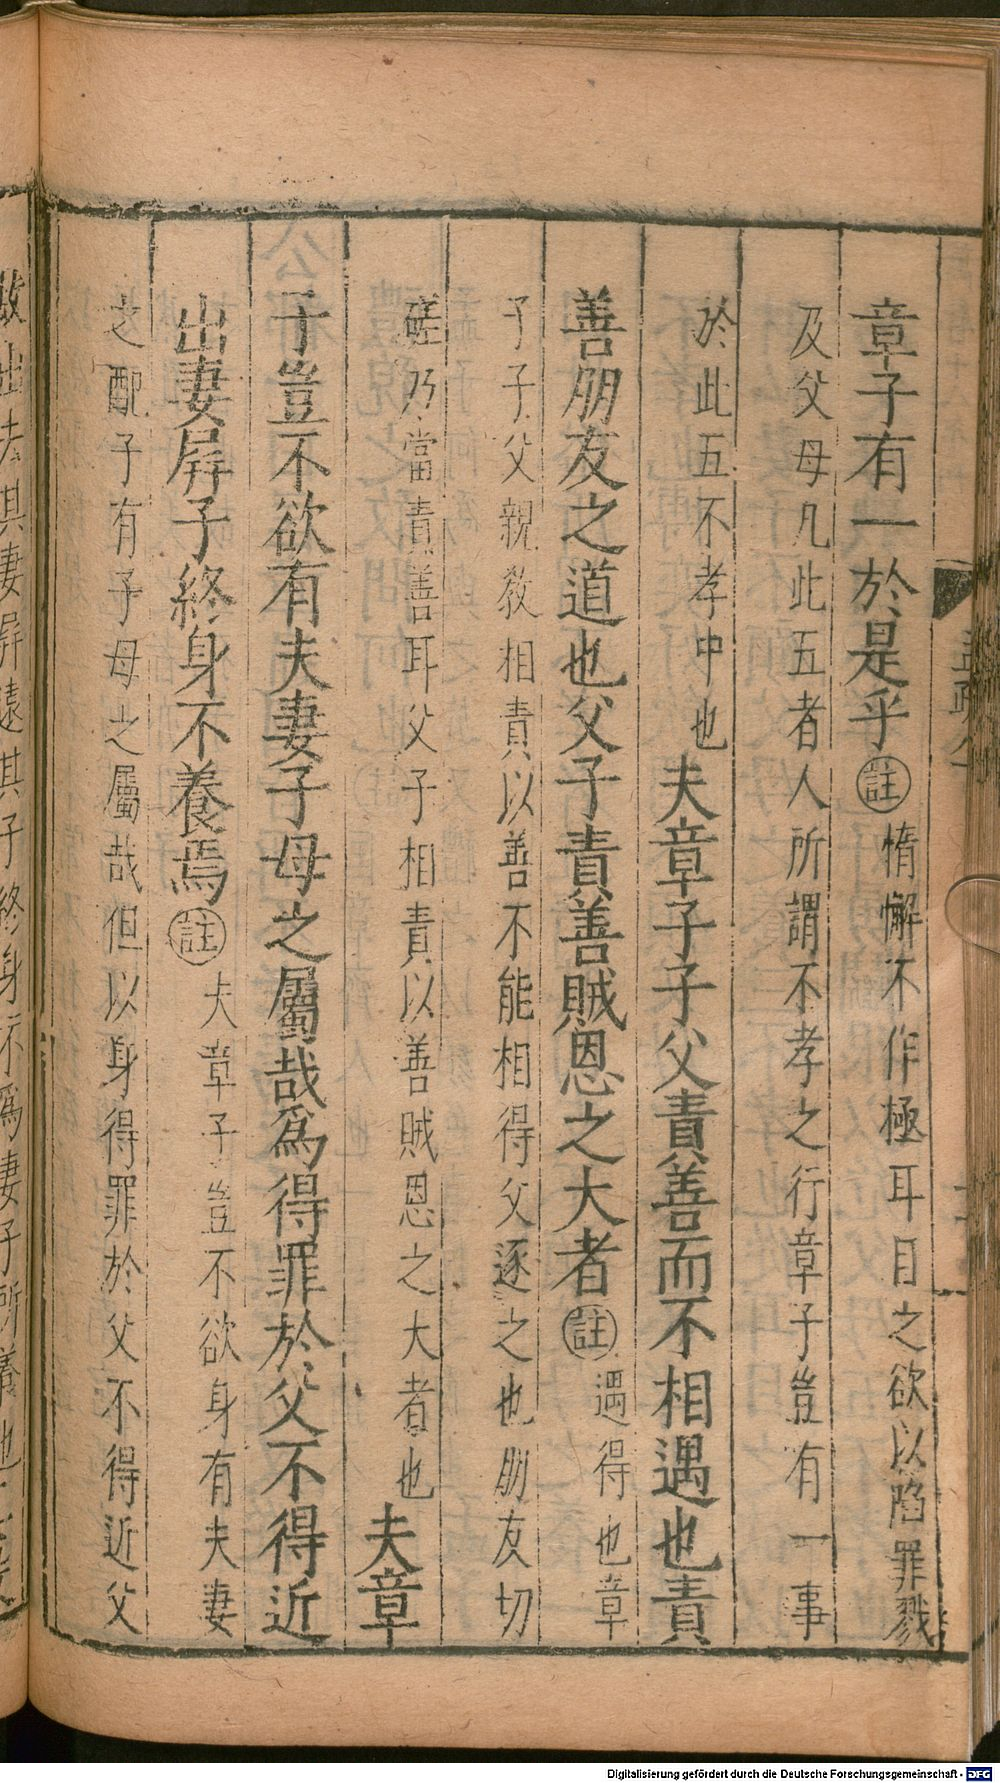 章子有一於是乎註惰懈不作極耳目之欲以陷罪戮
及父母凡此五者人所謂不孝之行章子豈有一事
於此五不孝中也夫章子子父責善而不相遇也責
善朋友之道也父子責善賊恩之大者註遇得也章
子子父親教相責以善不能相得父逐之也朋友切
磋乃當責善耳父子相責以善賊恩之大者也夫章
子豈不欲有夫妻子母之屬哉為得罪於父不得近
出妻屏子終身不養焉註夫章子豈不欲身有夫妻
之配子有子母之屬哉但以身得罪於父不得近父
故出去其妻屏遠其子終身不為妻子所養也
Digitalisierung gefördert durch die Deutsche Forschungsgemeinschaft - DFG